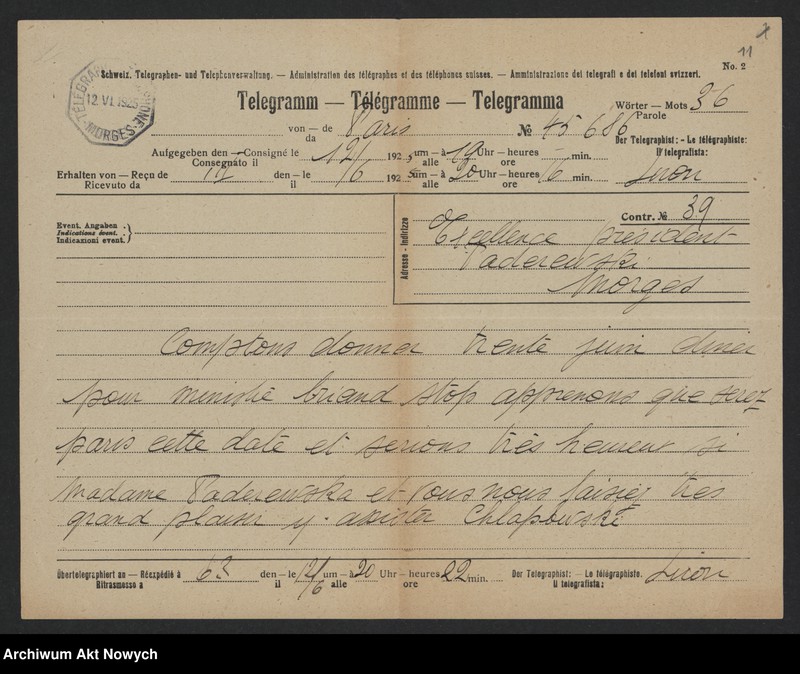 11
No. 2
Schweiz. Telegraphen- und Telephonverwaltung. — Administration des télégraphes et des téléphones suisses. — Amministrazione dei telegrafi e dei telefoni svizzeri.
12 VI 1925
MORGES
Telegramm — Télégramme — Telegramma
Wörter — Mots 36
Parole
von — de Paris № 45686
da
Der Telegraphist: - Le télégraphiste:
Il telegrafista:
Aufgegeben den — Consigné le 12/6 192 5 um — à 19 Uhr — heures — min.
Consegnato il alle ore
Erhalten von — Reçu de den — le /6 192 5 um — à 20 Uhr — heures 16 min.
Ricevuto da il alle ore
Event. Angaben
Indications évent.
Indicazioni event.
Adresse - Indirizzo
Contr. № 39
Excellence président
Paderewski
Morges
Comptons donner trente juin diner
pour ministre briand stop apprenons que serez
paris cette date et serions très heureux si
Madame Paderewska et vous nous faisiez très
grand plaisir y assister Chlapowski
Übertelegraphiert an — Réexpédié à 63 den — le 12/6 um — à 20 Uhr — heures 22 min.
Ritrasmesso a il alle ore
Der Telegraphist: — Le télégraphiste.
Il telegrafista:
Archiwum Akt Nowych